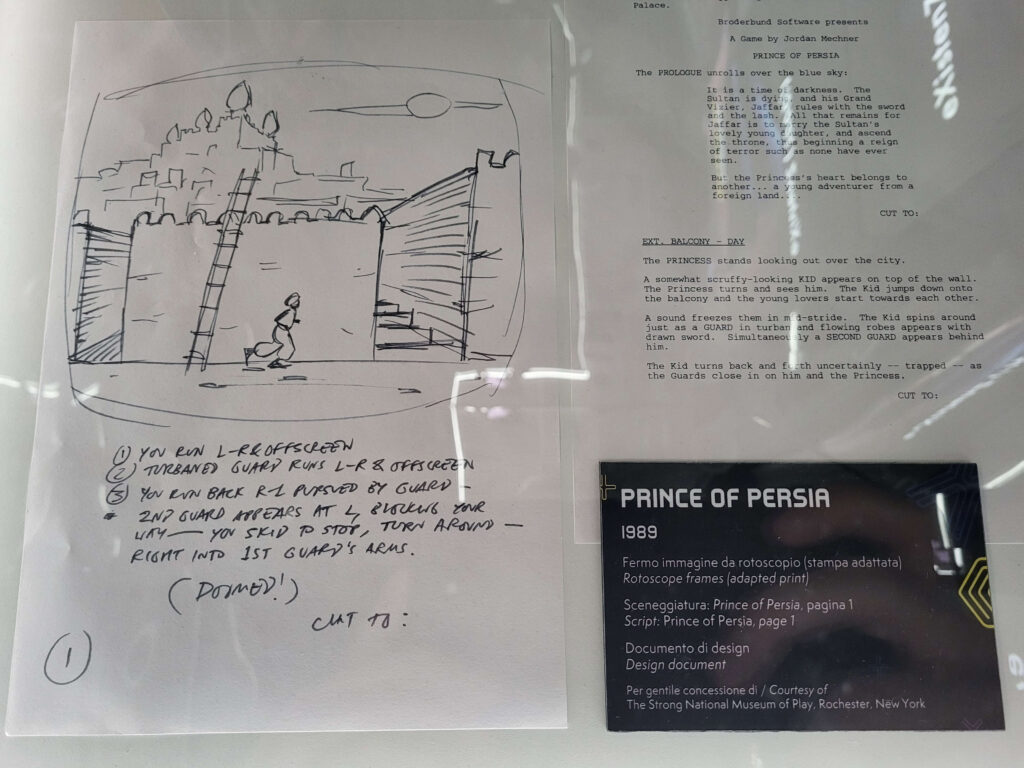 ① YOU RUN L-R & OFFSCREEN
② TURBANED GUARD RUNS L-R & OFFSCREEN
③ YOU RUN BACK R-L PURSUED BY GUARD -
2ND GUARD APPEARS AT L, BLOCKING YOUR
WAY — YOU SKID TO STOP, TURN AROUND —
RIGHT INTO 1ST GUARD'S ARMS.
(DOOMED!)
CUT TO:
①
Palace.
Broderbund Software presents
A Game by Jordan Mechner
PRINCE OF PERSIA
The PROLOGUE unrolls over the blue sky:
It is a time of darkness. The
Sultan is dying, and his Grand
Vizier, Jaffar, rules with the sword
and the lash. All that remains for
Jaffar is to marry the Sultan's
lovely young daughter, and ascend
the throne, thus beginning a reign
of terror such as none have ever
seen.
But the Princess's heart belongs to
another... a young adventurer from a
foreign land....
CUT TO:
EXT. BALCONY - DAY
The PRINCESS stands looking out over the city.
A somewhat scruffy-looking KID appears on top of the wall.
The Princess turns and sees him. The Kid jumps down onto
the balcony and the young lovers start towards each other.
A sound freezes them in mid-stride. The Kid spins around
just as a GUARD in turban and flowing robes appears with
drawn sword. Simultaneously a SECOND GUARD appears behind
him.
The Kid turns back and forth uncertainly -- trapped -- as
the Guards close in on him and the Princess.
CUT TO:
PRINCE OF PERSIA
1989
Fermo immagine da rotoscopio (stampa adattata)
Rotoscope frames (adapted print)
Sceneggiatura: Prince of Persia, pagina 1
Script: Prince of Persia, page 1
Documento di design
Design document
Per gentile concessione di / Courtesy of
The Strong National Museum of Play, Rochester, New York